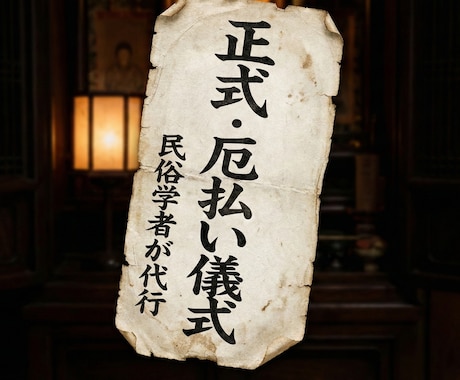 正式・厄払い儀式
民俗学者が代行